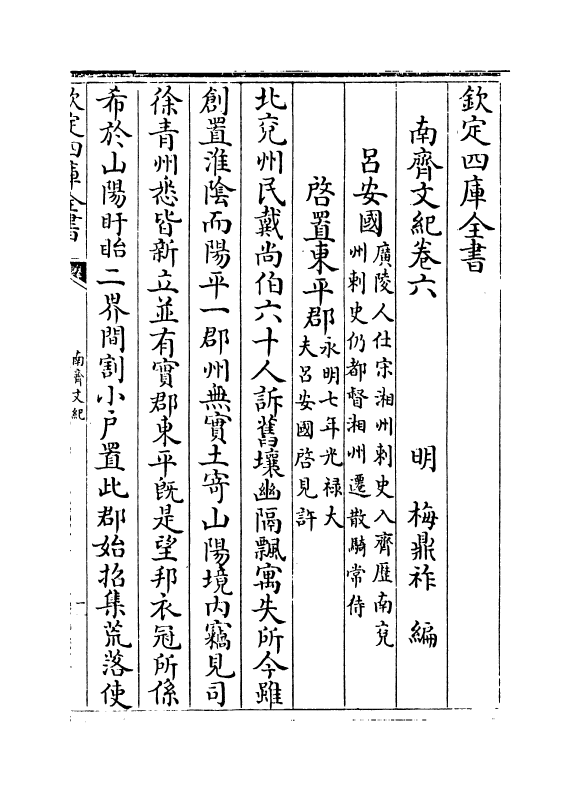 欽定四庫全書
南齊文紀卷六
明 梅鼎祚 編
呂安國
廣陵人仕宋湘州刺史入齊歷南兗
州刺史仍都督湘州遷散騎常侍
啓置東平郡
永明七年光禄大
夫呂安國啓見許
北兗州民戴尚伯六十人訴舊壤幽隔飄寓失所今雖
創置淮陰而陽平一郡州無實土寄山陽境内竊見司
徐青州悉皆新立並有實郡東平既是望邦衣冠所係
希於山陽盱眙二界間割小户置此郡始招集荒落使
欽定四庫全書
南齊文紀
一